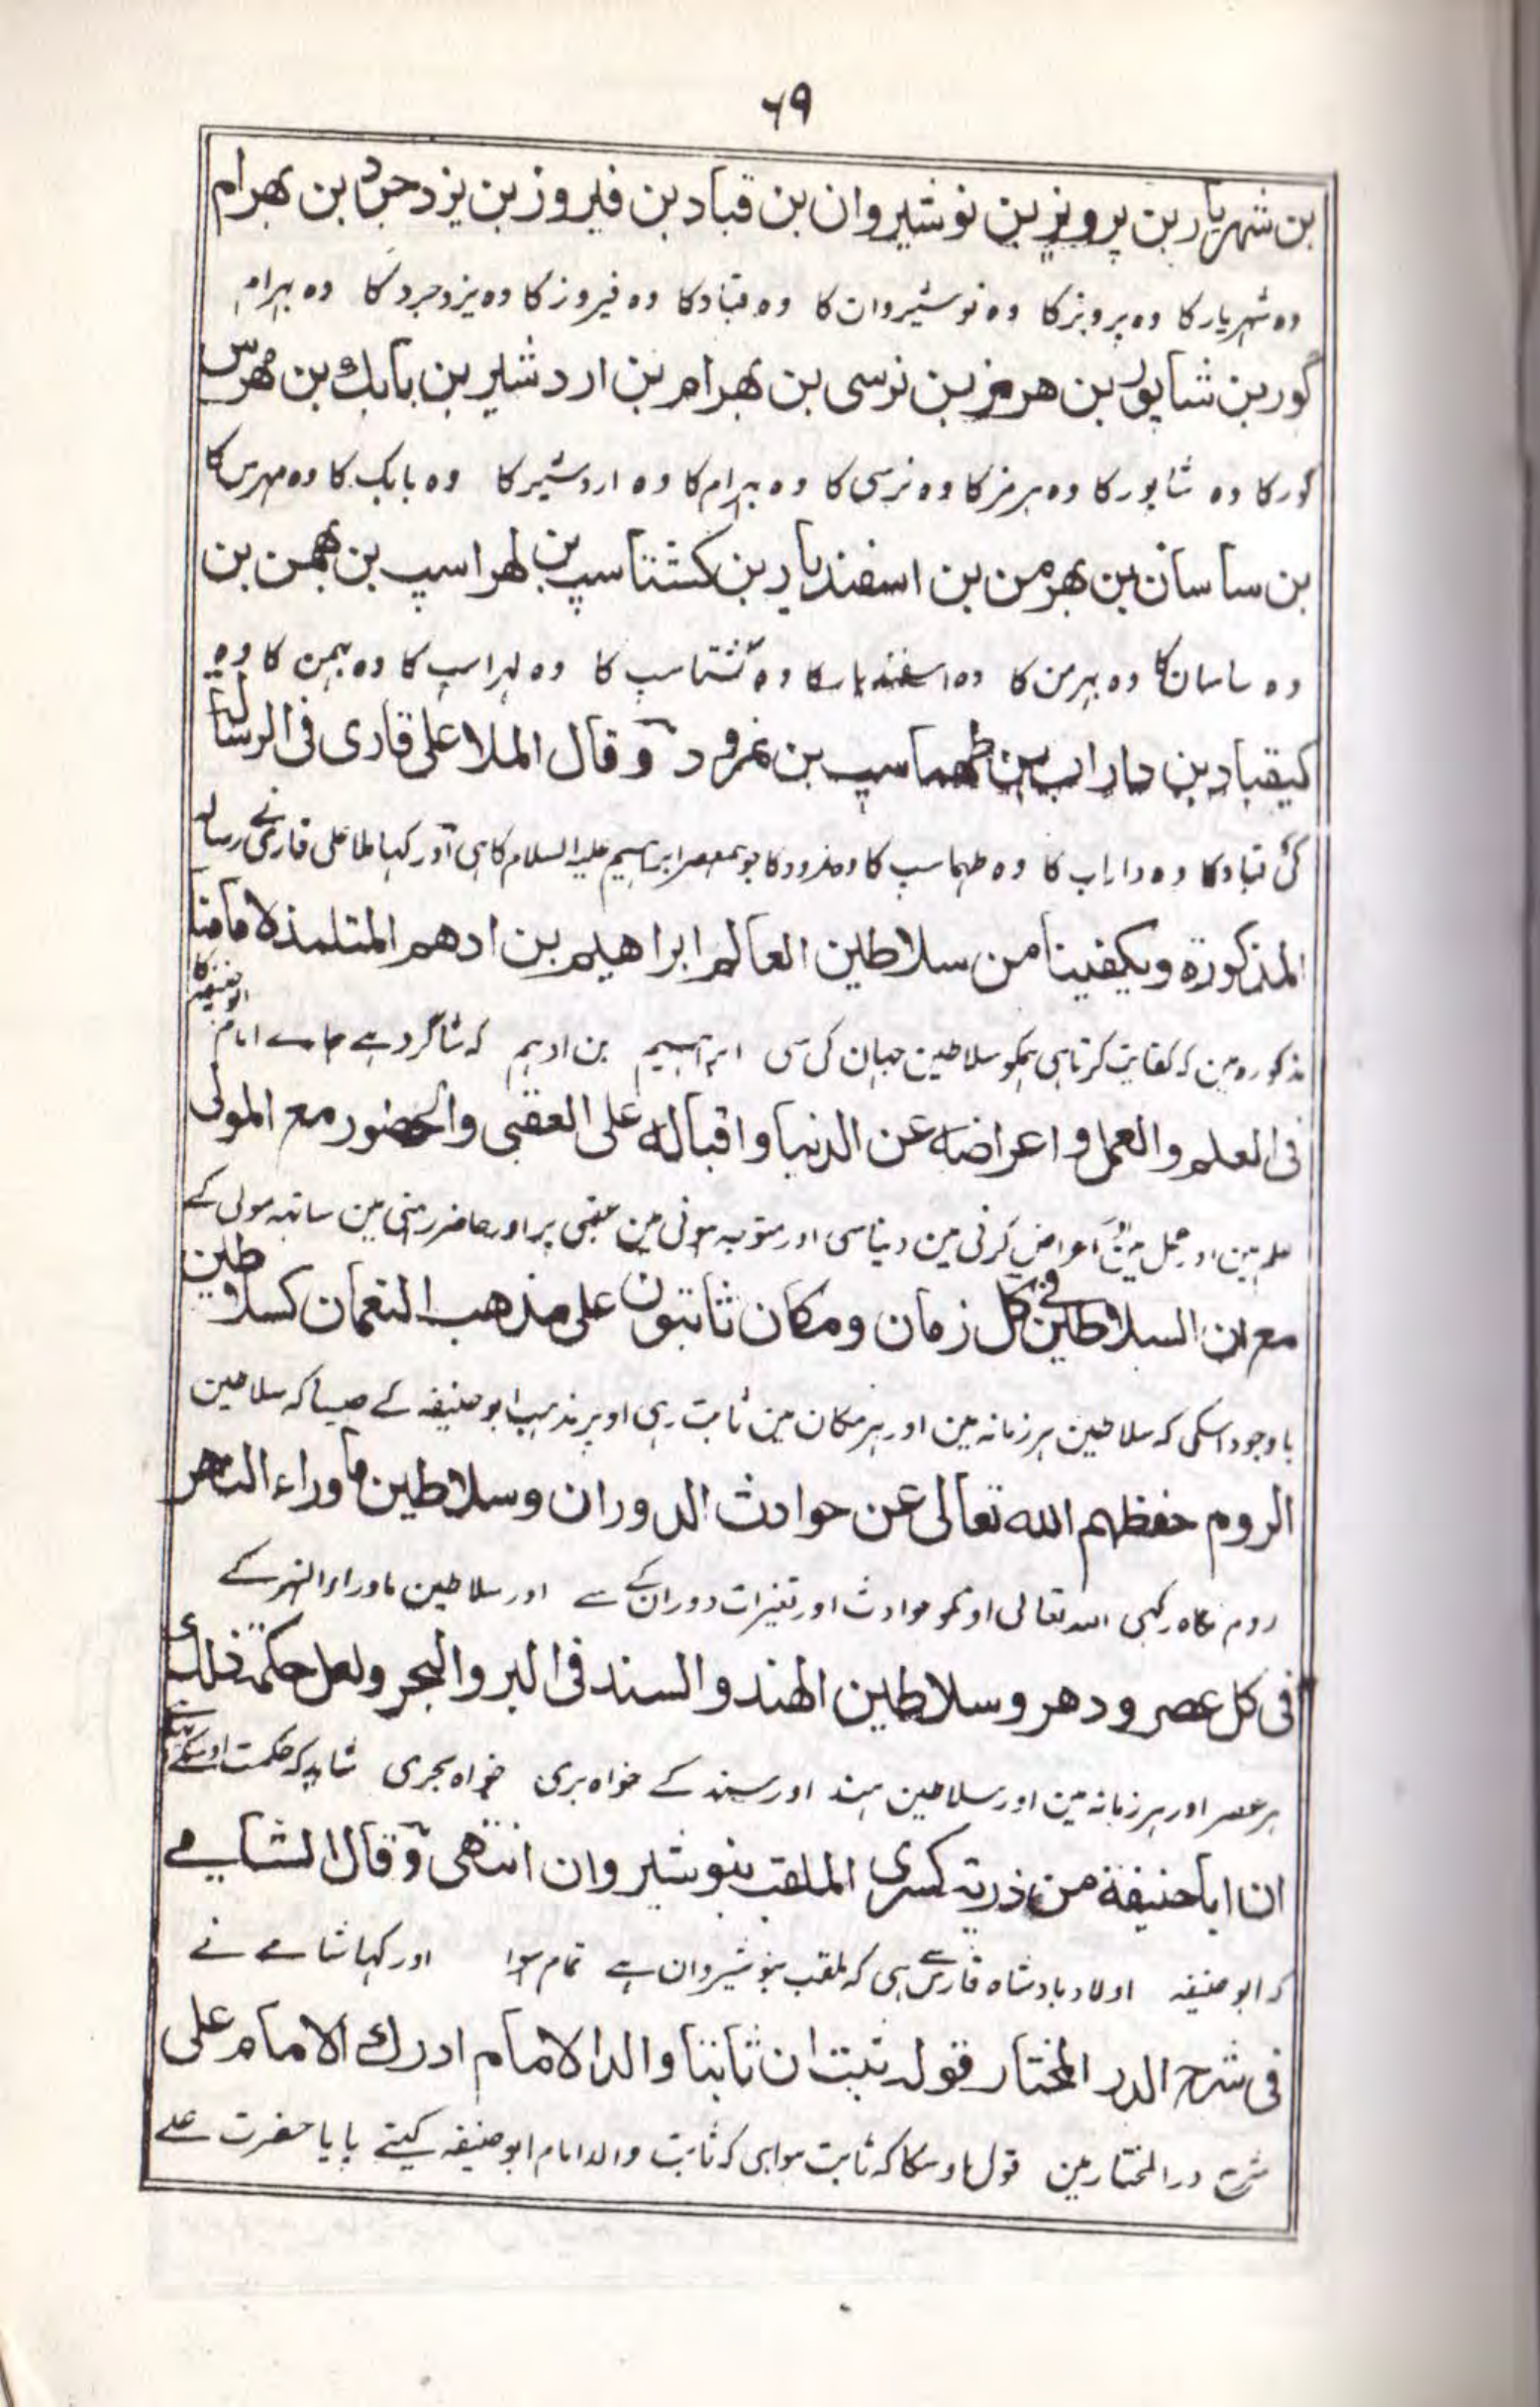 ٦٩
بن شهریار بن پرویز بن نوشیروان بن قباد بن فیروز بن یزدجرد بن بهرام
وہ شہریار کا وہ پرویز کا وہ نوشیروان کا وہ قباد کا وہ فیروز کا وہ یزدجرد کا وہ بہرام
گور بن شاپور بن هرمز بن نرسی بن بهرام بن اردشیر بن بابك بن مهرس
گور کا وہ شاپور کا وہ ہرمز کا وہ نرسی کا وہ بہرام کا وہ اردشیر کا وہ بابک کا وہ مہرس کا
بن ساسان بن بهرمن بن اسفندیار بن کشتاسپ بن لهراسپ بن بهمن بن
وہ ساسان کا وہ بہرمن کا وہ اسفندیار کا وہ گشتاسپ کا وہ لہراسپ کا وہ بہمن کا وہ
کیقباد بن داراب بن طهماسپ بن نمرود وقال الملا علی قاری فی الرسالة
کی قباد کا وہ داراب کا وہ طہماسپ کا وہ نمرود کا جو ہمعصر ابراہیم علیہ السلام کا ہی اور کہا ملا علی قاری نے رسالہ
المذکورة ویکفینا من سلاطین العالم ابراهیم بن ادهم المتلمذ لامامنا
مذکورہ مین کہ کفایت کرتا ہی ہمکو سلاطین جہان کی سی ابراہیم بن ادہم کہ شاگرد ہے ہمارے امام ابوحنیفہ کا
فی العلم والعمل واعراضه عن الدنیا واقباله علی العقبی والحضور مع المولی
علم مین اور عمل مین اور اعراض کرنی مین دنیا سی اور متوجہ ہونی مین عقبی پر اور حاضر رہنی مین ساتہہ مولی کے
مع ان السلاطین فی کل زمان ومکان ثابتون علی مذهب النعمان کسلاطین
باوجود اسکی کہ سلاطین ہر زمانہ مین اور ہر مکان مین ثابت رہی اوپر مذہب ابو حنیفہ کے جیسا کہ سلاطین
الروم حفظهم الله تعالی عن حوادث الدوران وسلاطین ماوراء النهر
روم نگاہ رکہی اللہ تعالی اونکو حوادث اور تغیرات دوران کے سے اور سلاطین ماوراء النہر کے
فی کل عصر ودهر وسلاطین الهند والسند فی البر والبحر ولعل حکمة ذلك
ہر عصر اور ہر زمانہ مین اور سلاطین ہند اور سند کے خواہ بری خواہ بحری شاید کہ حکمت اوسکی
ان ابا حنیفة من ذریة کسری الملقب بنوشیروان انتهی وقال الشامے
کہ ابو حنیفہ اولاد بادشاہ فارس سے ہی کہ ملقب بنوشیروان ہے تمام ہوا اور کہا شامے نے
فی شرح الدر المختار قوله ثبت ان ثابتا والد الامام ادرك الامام علی
شرح در المختار مین قول اوسکا کہ ثابت ہوا ہی کہ ثابت والد امام ابو حنیفہ کیتے پایا حضرت علے